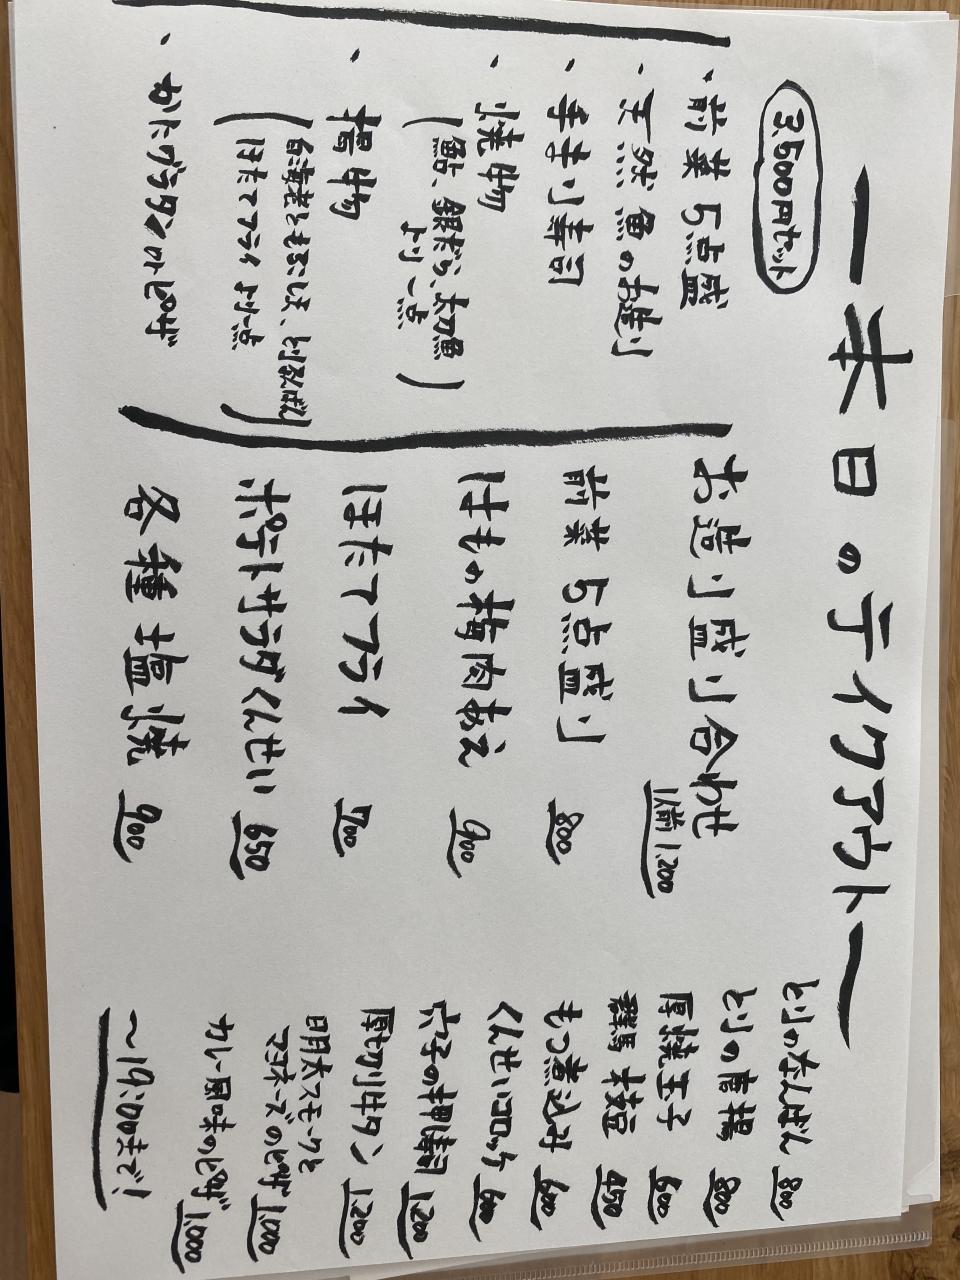 本日のテイクアウト
3,500円セット
・前菜5点盛
・天然魚のお造り
・手まり寿司
・焼物
(鮎、銀だら、太刀魚
より一点)
・揚物
(白海老ともろこし、とり
ほたてフライより一点)
・かにグラタンorピザ
お造り盛り合わせ
1人前1,200
前菜5点盛り
800
はもの梅肉あえ
900
ほたてフライ
700
ポテトサラダくんせい
650
各種塩焼
900
とりのなんばん 800
とりの唐揚 800
厚焼玉子 600
群馬 枝豆 450
もつ煮込み 600
くんせいコロッケ 600
穴子の押寿司 1,200
厚切り牛タン 1,200
明太スモークと
マヨネーズのピザ 1,000
カレー風味のピザ 1,000
～19:00まで!